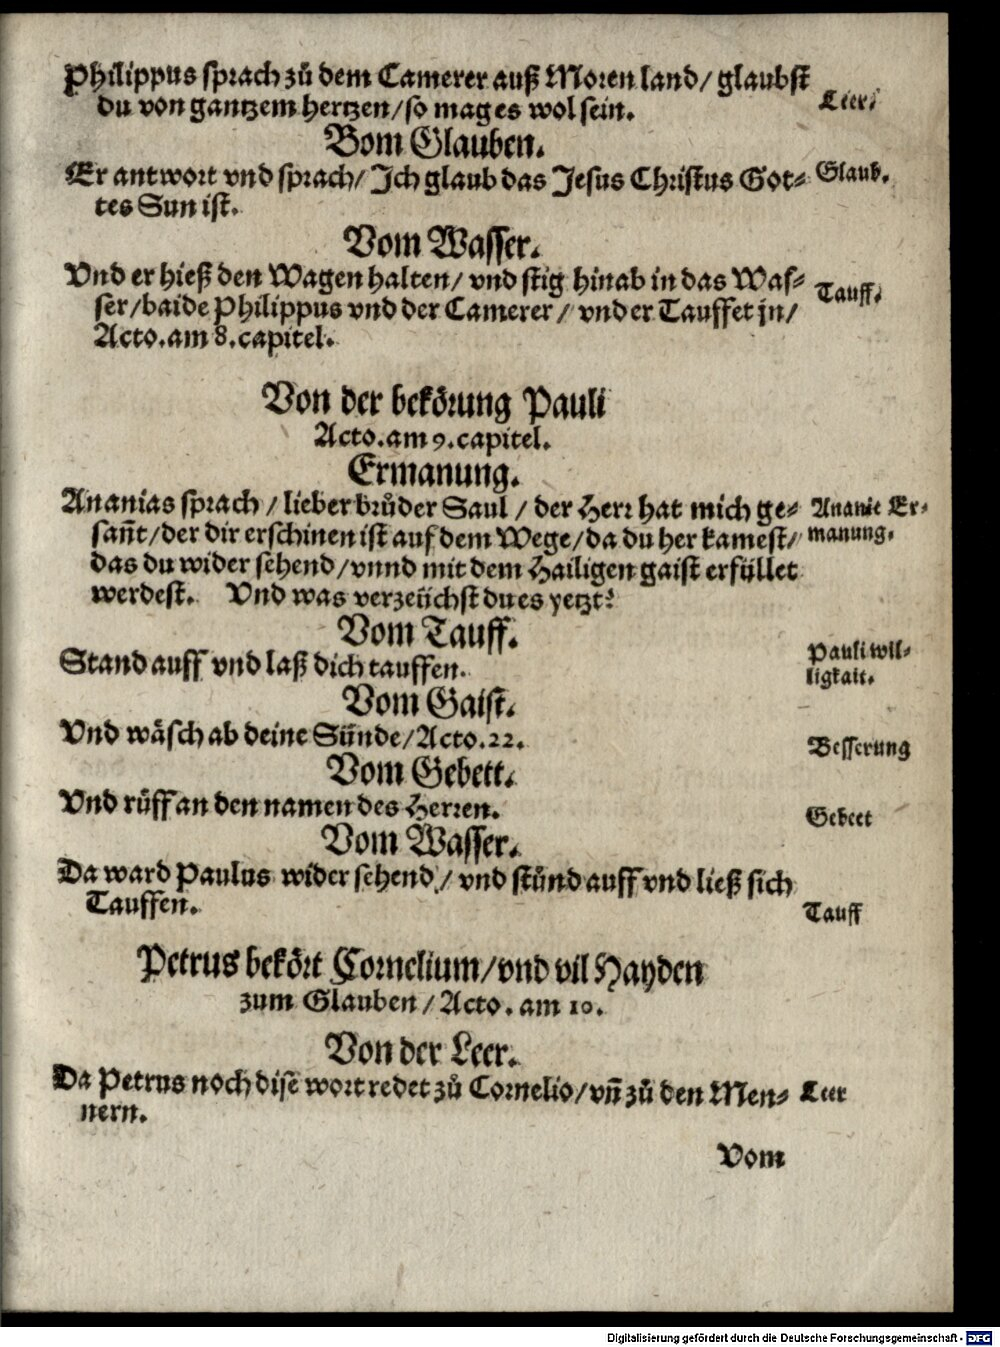 Philippus sprach zů dem Camerer auß Moren land/ glaubst
du von gantzem hertzen/ so mag es wol sein.
Leer.
Vom Glauben.
Er antwort vnd sprach/ Ich glaub das Jesus Christus Got⸗
Glaub.
tes Sun ist.
Vom Wasser.
Vnd er hieß den Wagen halten/ vnd stig hinab in das Was⸗
Tauff.
ser/ baide Philippus vnd der Camerer/ vnd er Tauffet jn/
Acto. am 8. capitel.
Von der bekörung Pauli
Acto. am 9. capitel.
Ermanung.
Ananias sprach / lieber brůder Saul / der Herr hat mich ge⸗
Ananie Er⸗
sañt/ der dir erschinen ist auf dem Wege/ da du her kamest/
manung.
das du wider sehend/ vnnd mit dem Hailigen gaist erfüllet
werdest. Vnd was verzeüchst du es yetzt?
Vom Tauff.
Stand auff vnd laß dich tauffen.
Pauli wil⸗
ligkait.
Vom Gaist.
Vnd wäsch ab deine Sünde/ Acto. 22.
Besserung
Vom Gebett.
Vnd rüff an den namen des Herren.
Gebeet
Vom Wasser.
Da ward Paulus wider sehend/ vnd stůnd auff vnd ließ sich
Tauffen.
Tauff
Petrus bekört Cornelium/ vnd vil Hayden
zum Glauben/ Acto. am 10.
Von der Leer.
Da Petrus noch dise wort redet zů Cornelio/ vñ zů den Men⸗
Leer
nern.
Vom
Digitalisierung gefördert durch die Deutsche Forschungsgemeinschaft - DFG